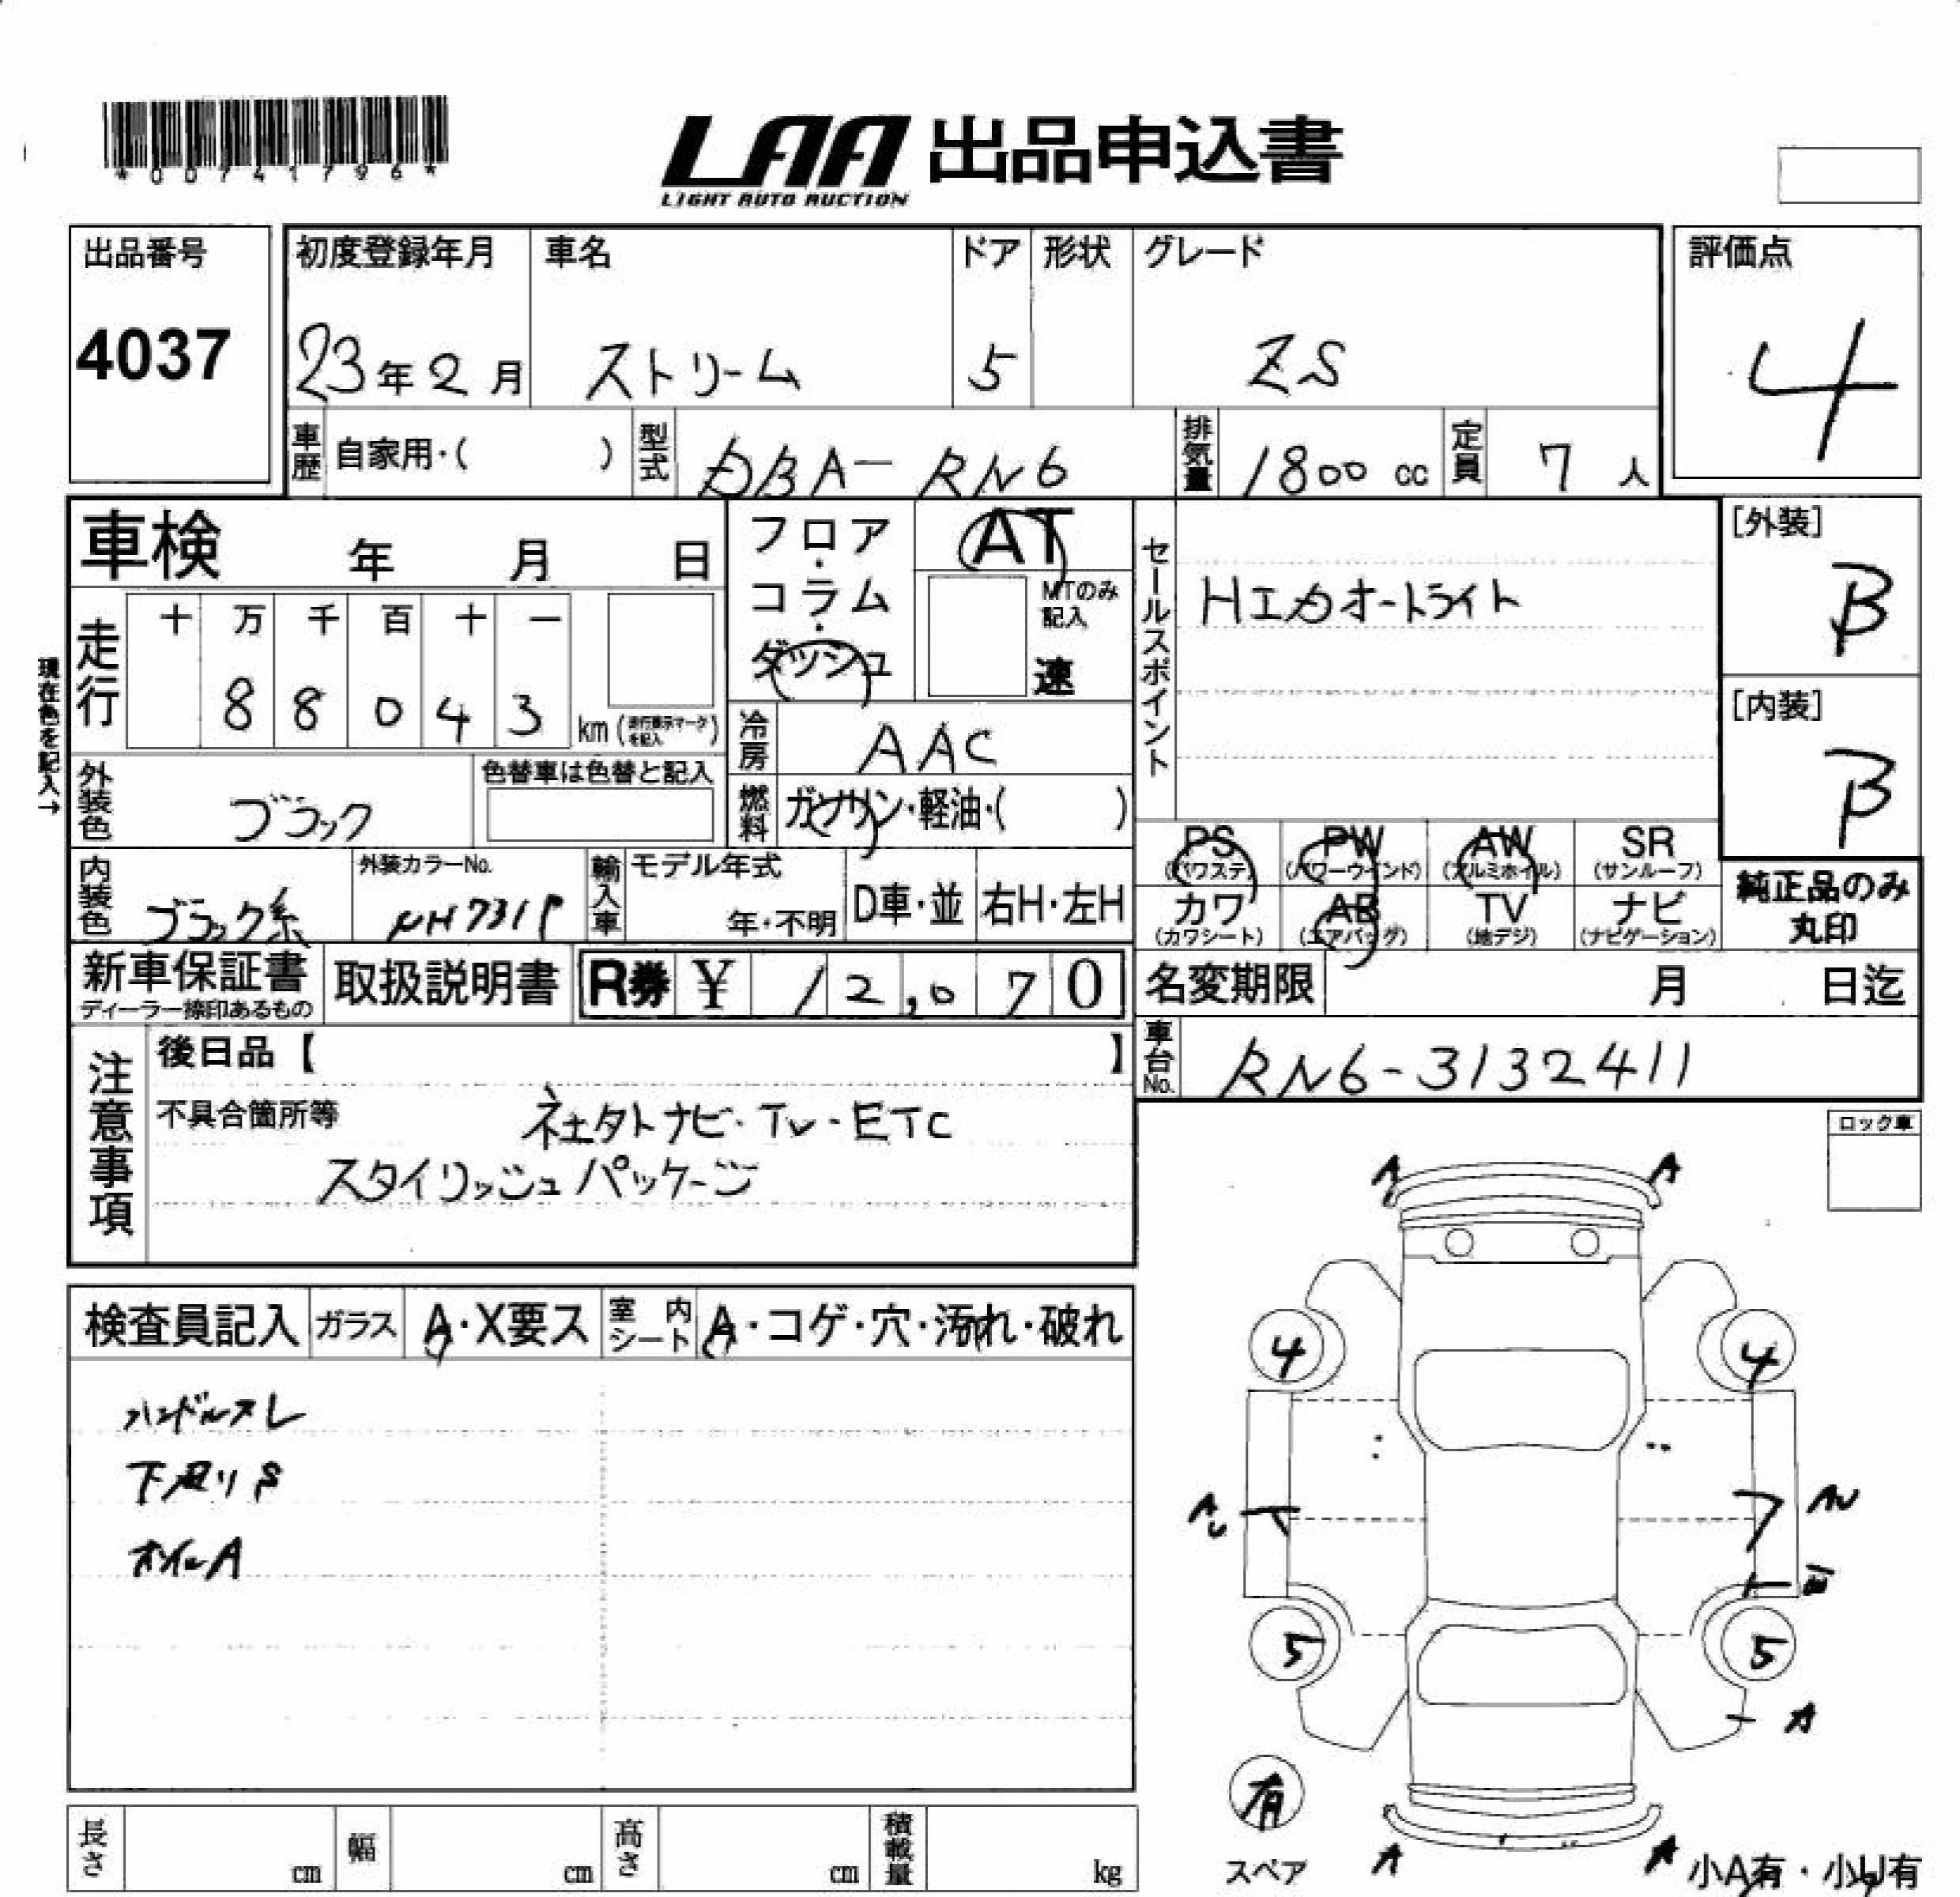 *00741796*
LAA 出品申込書
LIGHT AUTO AUCTION
出品番号
4037
初度登録年月
23年2月
車名
ストリーム
ドア
5
形状
グレード
ZS
評価点
4
車歴 自家用・( )
型式 DBA-RN6
排気量 1800 cc
定員 7 人
車検 年 月 日
フロア・コラム・ダッシュ
AT
MTのみ記入
速
セールスポイント
HIDオートライト
[外装]
B
[内装]
B
現在色を記入→
走行
十 万 千 百 十 一
8 8 0 4 3
km (走行表示マークを記入)
冷房 AAC
燃料 ガソリン・軽油・( )
外装色 ブラック
色替車は色替と記入
内装色 ブラック系
外装カラーNo.
NH731P
輸入車
モデル年式
年・不明
D車・並
右H・左H
PS (パワステ)
PW (パワーウインド)
AW (アルミホイル)
SR (サンルーフ)
カワ (カワシート)
AB (エアバッグ)
TV (地デジ)
ナビ (ナビゲーション)
純正品のみ丸印
新車保証書
ディーラー捺印あるもの
取扱説明書
R券 ¥ 12,070
名変期限 月 日迄
車台No. RN6-3132411
注意事項
後日品【 】
不具合箇所等
社外ナビ・TV・ETC
スタイリッシュパッケージ
ロック車
検査員記入
ガラス A・X要ス
室内シート A・コゲ・穴・汚れ・破れ
ハンドルスレ
下廻りS
オイルA
A A
4 4
A
5 5
A
有
スペア
A A
小A有・小U有
長さ cm
幅 cm
高さ cm
積載量 kg